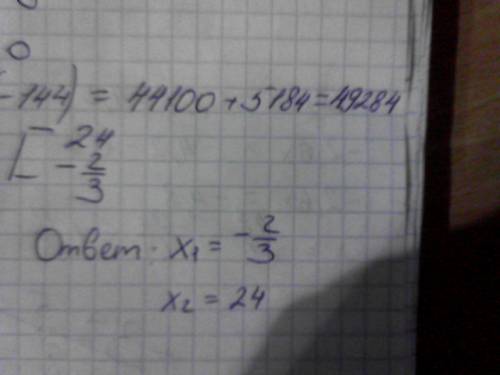 0
-144) = 44100 + 5184 = 49284
[ 24
- 2/3
Ответ: x₁ = - 2/3
x₂ = 24